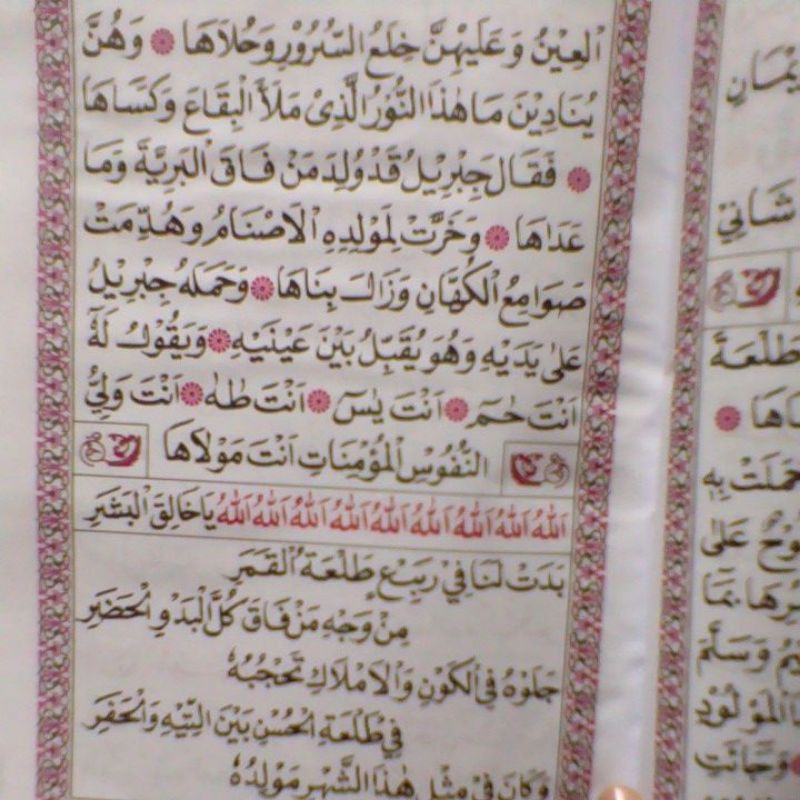 الْعِيْنُ وَعَلَيْهِنَّ خِلَعُ السُّرُوْرِ وَحُلَاهَا ۞ وَهُنَّ
يُنَادِيْنَ مَا هٰذَا النُّوْرُ الَّذِىْ مَلَأَ الْبِقَاعَ وَكَسَاهَا
۞ فَقَالَ جِبْرِيْلُ قَدْ وُلِدَ مَنْ فَاقَ الْبَرِيَّةَ وَمَا
عَدَاهَا ۞ وَخَرَّتْ لِمَوْلِدِهِ الْاَصْنَامُ وَهُدِّمَتْ
صَوَامِعُ الْكُهَّانِ وَزَالَ بِنَاهَا ۞ وَحَمَلَهُ جِبْرِيْلُ
عَلٰى يَدَيْهِ وَهُوَ يُقَبِّلُ بَيْنَ عَيْنَيْهِ ۞ وَيَقُوْلُ لَهٗ
اَنْتَ حٰمٓ ۞ اَنْتَ يٰسٓ ۞ اَنْتَ طٰهٰ ۞ اَنْتَ وَلِيُّ
النُّفُوْسِ الْمُؤْمِنَاتِ اَنْتَ مَوْلَاهَا
اَللهُ اَللهُ اَللهُ اَللهُ اَللهُ اَللهُ اَللهُ اَللهُ اَللهُ يَا خَالِقَ الْبَشَرِ
بَدَتْ لَنَا فِيْ رَبِيْعٍ طَلْعَةُ الْقَمَرِ
مِنْ وَجْهِ مَنْ فَاقَ كُلَّ الْبَدْوِ الْحَضَرِ
جَلَوْهُ فِي الْكَوْنِ وَالْاَمْلَاكِ تَحْجُبُهٗ
فِيْ طَلْعَةِ الْحُسْنِ بَيْنَ التِّيْهِ وَالْخَفَرِ
وَكَانَ فِيْ مِثْلِ هٰذَا الشَّهْرِ مَوْلِدُهٗ
شَانِيْ
طَلْعَةً
حَمَلَتْ بِهٖ
عَلٰى
بِمَا
وَسَلَّمَ
الْمَوْلُوْدِ
وَجَائَتِ